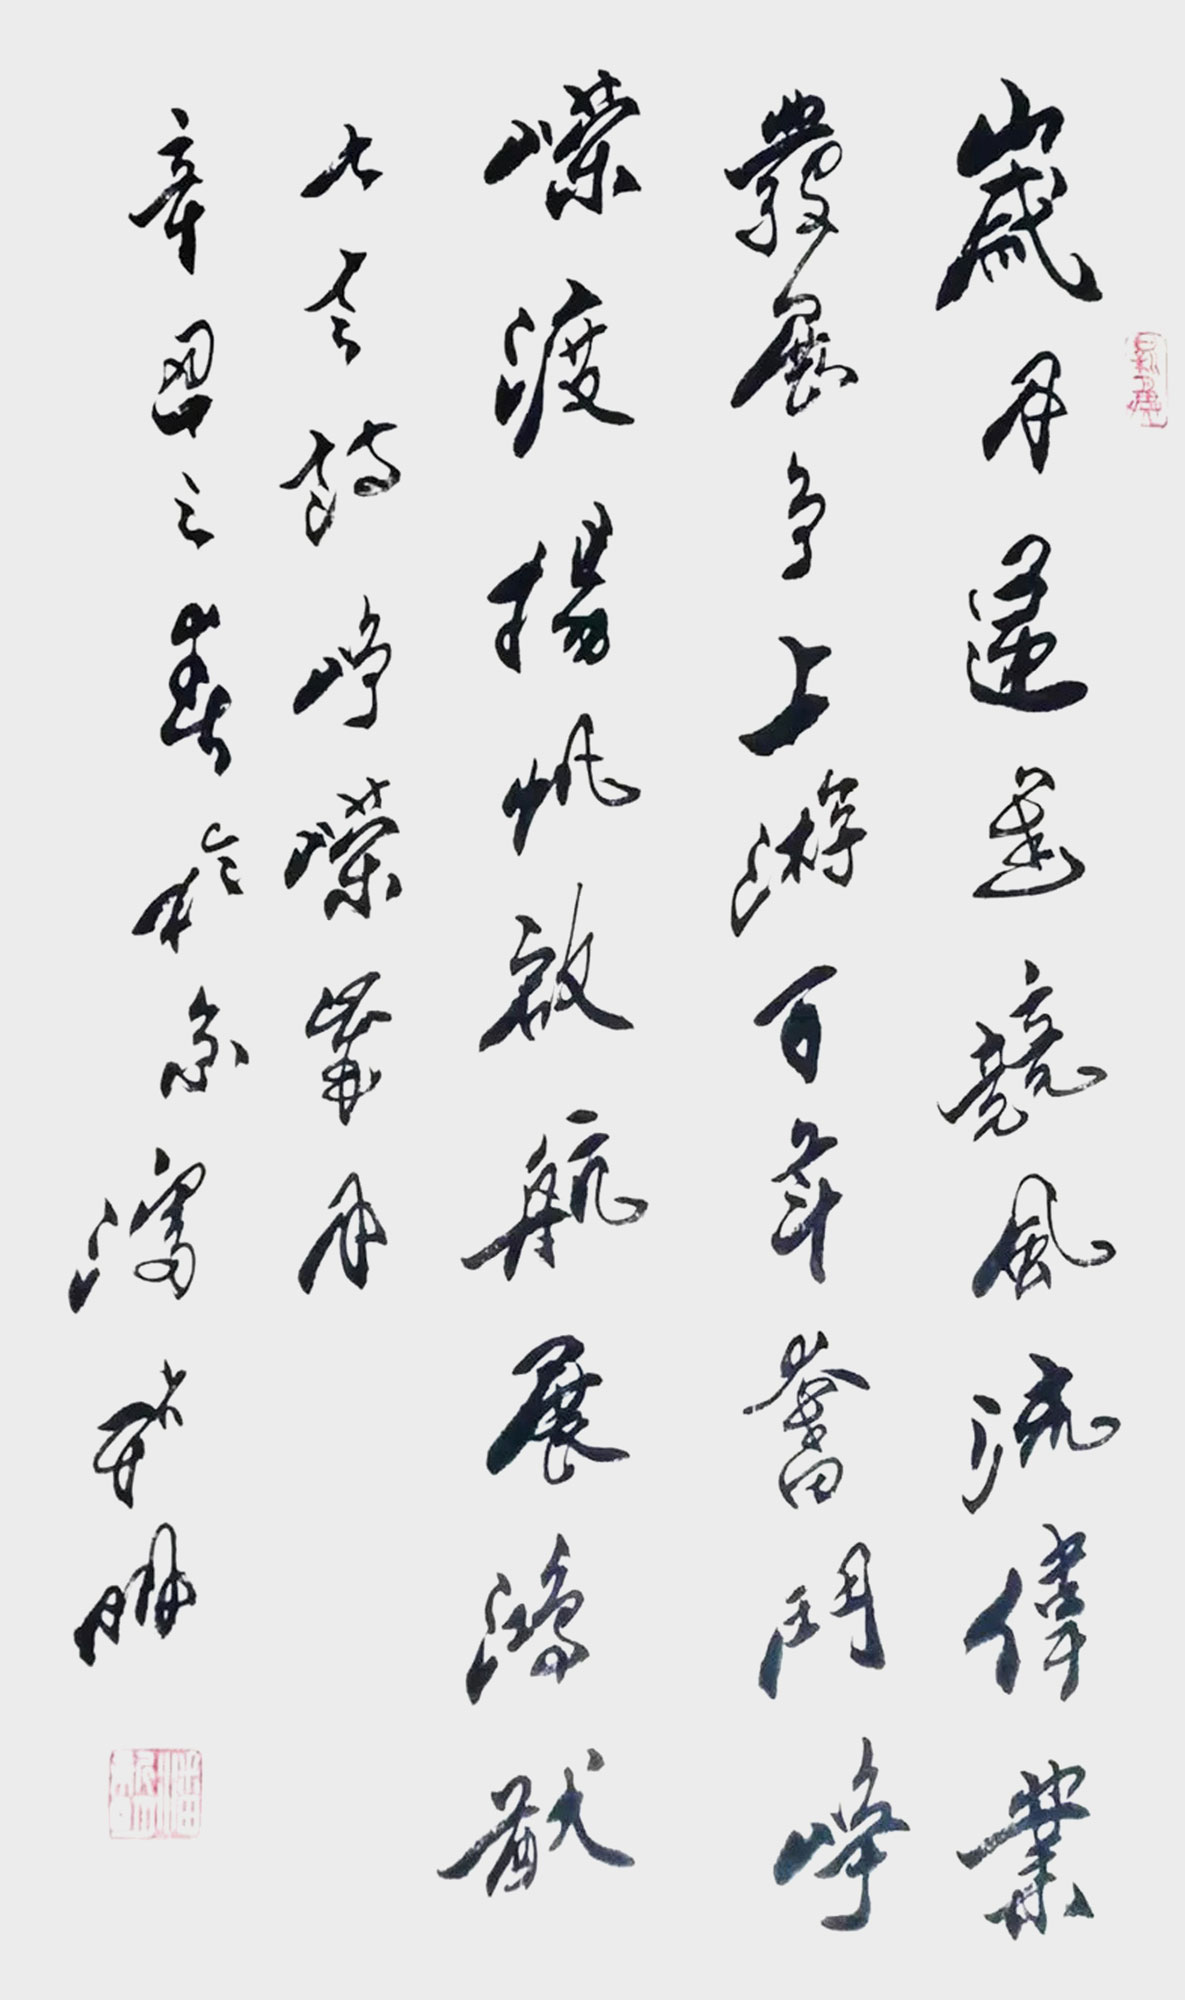 歲月競風流偉業
發展爭上游百年奮鬥崢
嶸渡揚帆啟航展鴻猷
七言詩崢嶸歲月
辛丑之春於京潘